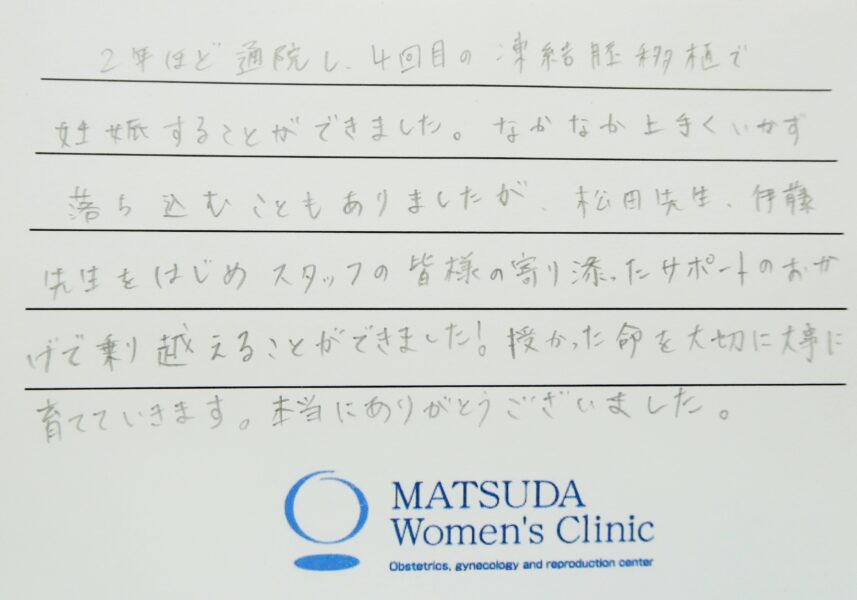 2年ほど通院し、4回目の凍結胚移植で
妊娠することができました。なかなか上手くいかず
落ち込むこともありましたが、松田先生、伊藤
先生をはじめスタッフの皆様の寄り添ったサポートのおか
げで乗り越えることができました!授かった命を大切に大事に
育てていきます。本当にありがとうございました。
MATSUDA
Women's Clinic
Obstetrics, gynecology and reproduction center